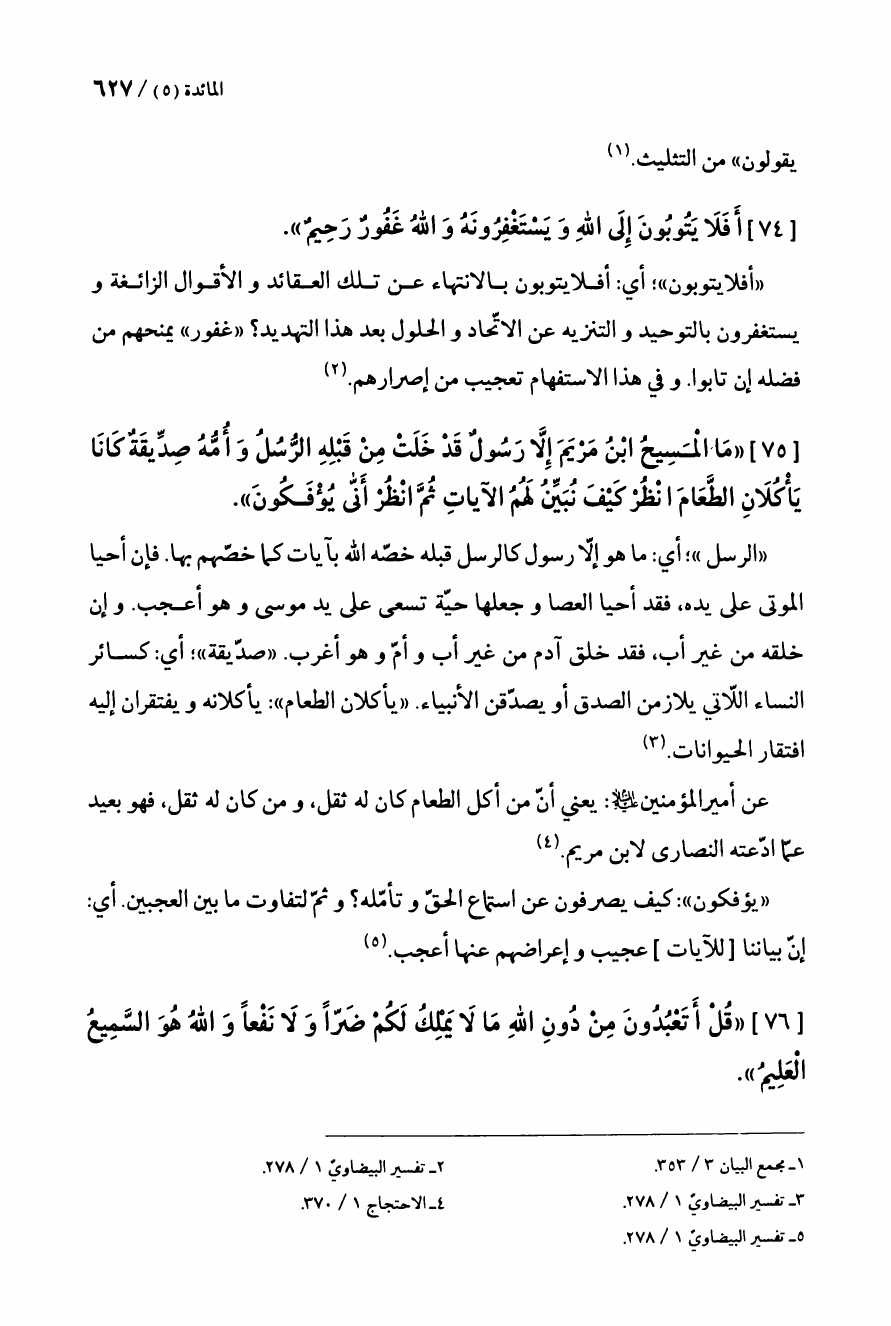 المائدة (٥) / ٦٢٧
يقولون» من التثليث.(١)
[ ٧٤ ] أَ فَلَا يَتُوبُونَ إِلَى اللهِ وَ يَسْتَغْفِرُونَهُ وَ اللهُ غَفُورٌ رَحِيمٌ».
«أفلايتوبون»؛ أي: أفـلايتوبون بـالانتهاء عـن تـلك العـقائد و الأقـوال الزائـغة و
يستغفرون بالتوحيد و التنزيه عن الاتّحاد و الحلول بعد هذا التهديد؟ «غفور» يمنحهم من
فضله إن تابوا. و في هذا الاستفهام تعجيب من إصرارهم.(٢)
[ ٧٥ ] «مَا الْمَسِيحُ ابْنُ مَرْيَمَ إِلَّا رَسُولٌ قَدْ خَلَتْ مِنْ قَبْلِهِ الرُّسُلُ وَ أُمُّهُ صِدِّيقَةٌ كَانَا
يَأْكُلَانِ الطَّعَامَ انْظُرْ كَيْفَ نُبَيِّنُ لَهُمُ الآيَاتِ ثُمَّ انْظُرْ أَنَّى يُؤْفَـكُونَ».
«الرسل»؛ أي: ما هو إلّا رسول كالرسل قبله خصّه الله بآيات كما خصّهم بها. فإن أحيا
الموتى على يده، فقد أحيا العصا و جعلها حيّة تسعى على يد موسى و هو أعـجب. و إن
خلقه من غير أب، فقد خلق آدم من غير أب و أمّ و هو أغرب. «صدّيقة»؛ أي: كسـائر
النساء اللّاتي يلازمن الصدق أو يصدّقن الأنبياء. «يأكلان الطعام»: يأكلانه و يفتقران إليه
افتقار الحيوانات.(٣)
عن أميرالمؤمنين عليه السلام: يعني أنّ من أكل الطعام كان له ثقل، و من كان له ثقل، فهو بعيد
عمّا ادّعته النصارى لابن مريم.(٤)
«يؤفكون»: كيف يصرفون عن استماع الحقّ و تأمّله؟ و ثمّ لتفاوت ما بين العجبين. أي:
إنّ بياننا [ للآيات ] عجيب و إعراضهم عنها أعجب.(٥)
[ ٧٦ ] «قُلْ أَ تَعْبُدُونَ مِنْ دُونِ اللهِ مَا لَا يَمْلِكُ لَكُمْ ضَرّاً وَ لَا نَفْعاً وَ اللهُ هُوَ السَّمِيعُ
الْعَلِيمُ».
١ـ مجمع البيان ٣ / ٣٥٣.
٢ـ تفسير البيضاويّ ١ / ٢٧٨.
٣ـ تفسير البيضاويّ ١ / ٢٧٨.
٤ـ الاحتجاج ١ / ٣٧٠.
٥ـ تفسير البيضاويّ ١ / ٢٧٨.